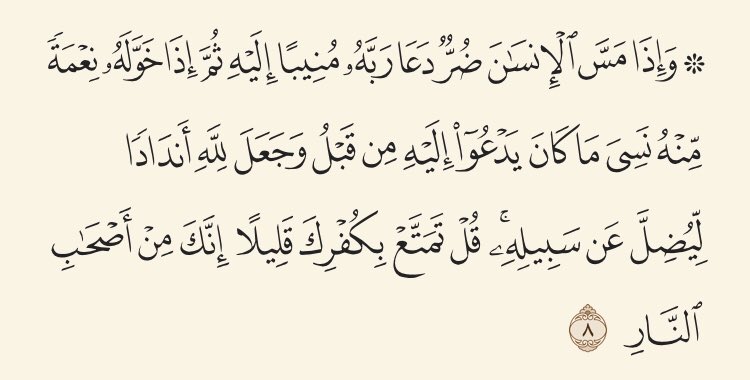 ۞ وَإِذَا مَسَّ ٱلْإِنسَـٰنَ ضُرٌّ دَعَا رَبَّهُۥ مُنِيبًا إِلَيْهِ ثُمَّ إِذَا خَوَّلَهُۥ نِعْمَةً
مِّنْهُ نَسِىَ مَا كَانَ يَدْعُوٓا۟ إِلَيْهِ مِن قَبْلُ وَجَعَلَ لِلَّهِ أَندَادًا
لِّيُضِلَّ عَن سَبِيلِهِۦ ۚ قُلْ تَمَتَّعْ بِكُفْرِكَ قَلِيلًا إِنَّكَ مِنْ أَصْحَـٰبِ
ٱلنَّارِ ٨